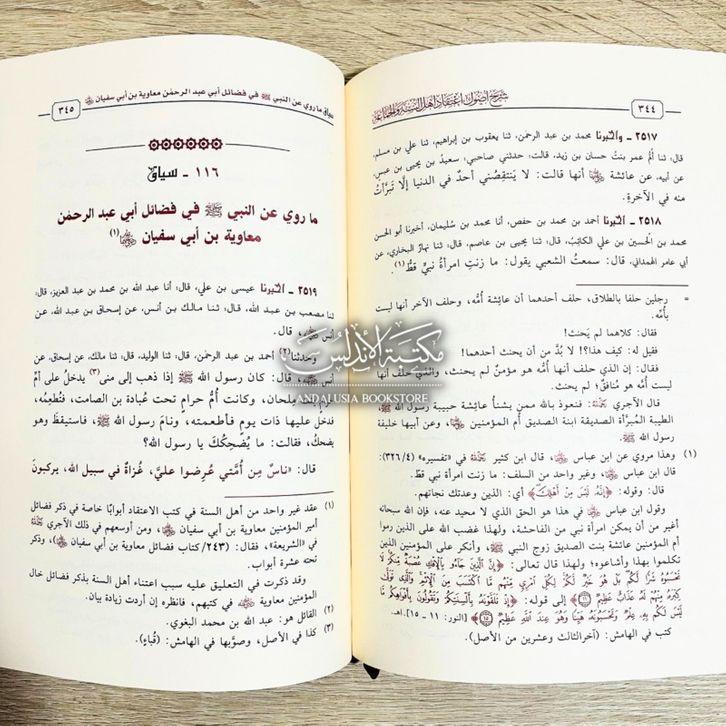 ٣٤٤
شرح أصول اعتقاد أهل السنة والجماعة
٢٥١٧ - وأخبرنا محمد بن عبد الرحمن، ثنا يعقوب بن إبراهيم، ثنا علي بن مسلم،
قال: ثنا أُم عمر بنتُ حسان بن زيد، قالت: حدثني صاحبي، سعيدُ بن يحيى بن عبس،
عن أبيه، عن عائشة ﵂ أنها قالت: لا يَنتقِصُني أحدٌ في الدنيا إلَّا تَبرَّأتُ
منه في الآخرةِ.
٢٥١٨ - أخبرنا أحمد بن محمد بن حفص، أنا محمد بن سُليمان، أخبرنا أبو الحسن
محمد بن الحُسين بن علي الكاتبُ، قال: ثنا يحيى بن عاصم، قال: ثنا نهارٌ البخاري، عن
أبي عامر الهمْداني، قال: سمعتُ الشعبي يقول: ما زنتِ امرأةُ نبيٍّ قطُّ(١).
= رجلين حلفا بالطلاق، حلف أحدهما أن عائشة أُمُّه، وحلف الآخر أنها ليست
بأُمِّه.
فقال: كلاهما لم يَحنث!
فقيل له: كيف هذا؟! لا بُدَّ من أن يحنث أحدهما!
فقال: إن الذي حلف أنها أُمه هو مؤمنٌ لم يحنث، والذي حلف أنها
ليست أُمه هو مُنافقٌ؛ لم يحنث.
قال الآجري ﵀: فنعوذ بالله ممن يشنأُ عائشة حبيبة رسول الله ﷺ،
الطيبة المُبرَّأة الصديقة ابنة الصديق أم المؤمنين ﵂، وعن أبيها خليفة
رسول الله ﷺ.
(١) وهذا مروي عن ابن عباس ﵄، قال ابن كثير ﵀ في «تفسيره» (٣٢٦/٤):
قال ابن عباس ﵄، وغير واحد من السلف: ما زنت امرأة نبي قط.
قال: وقوله: ﴿إِنَّهُ لَيْسَ مِنْ أَهْلِكَ﴾ أي: الذين وعدتك نجاتهم.
وقول ابن عباس ﵄ في هذا هو الحق الذي لا محيد عنه، فإن الله سبحانه
أغير من أن يمكن امرأة نبي من الفاحشة، ولهذا غضب الله على الذين رموا
أم المؤمنين عائشة بنت الصديق زوج النبي ﷺ، وأنكر على المؤمنين الذين
تكلموا بهذا وأشاعوه؛ ولهذا قال تعالى: ﴿إِنَّ الَّذِينَ جَاءُو بِالْإِفْكِ عُصْبَةٌ مِنْكُمْ لَا
تَحْسَبُوهُ شَرًّا لَكُمْ بَلْ هُوَ خَيْرٌ لَكُمْ لِكُلِّ امْرِئٍ مِنْهُمْ مَا اكْتَسَبَ مِنَ الْإِثْمِ وَالَّذِي تَوَلَّى
كِبْرَهُ مِنْهُمْ لَهُ عَذَابٌ عَظِيمٌ ۝﴾ إلى قوله: ﴿إِذْ تَلَقَّوْنَهُ بِأَلْسِنَتِكُمْ وَتَقُولُونَ بِأَفْوَاهِكُمْ مَا
لَيْسَ لَكُمْ بِهِ عِلْمٌ وَتَحْسَبُونَهُ هَيِّنًا وَهُوَ عِنْدَ اللَّهِ عَظِيمٌ ۝﴾ [النور: ١١ - ١٥]. اهـ.
كتب في الهامش: (آخر الثالث وعشرين من الأصل).
سياق ما روي عن النبي ﷺ في فضائل أبي عبد الرحمٰن معاوية بن أبي سفيان ﵄
٣٤٥
١١٦ - سياق
ما روي عن النبي ﷺ في فضائل أبي عبد الرحمٰن
معاوية بن أبي سفيان ﵄(١)
٢٥١٩ - أخبرنا عيسى بن علي، قال: أنا عبد الله بن محمد بن عبد العزيز، قال:
ثنا مصعب بن عبد الله، قال: ثنا مالك بن أنس، عن إسحاق بن عبد الله، عن
أنس ﵁، قال.
وحدثنا(٢) أحمد بن عبد الرحمٰن، قال: ثنا الوليد، قال: ثنا مالك، عن إسحاق، عن
أنس ﵁، قال: كان رسول الله ﷺ إذا ذهب إلى منى(٣) يدخلُ على أمِّ
حرام بنت ملحان، وكانت أمُّ حرامٍ تحت عُبادة بن الصامت، فتُطعِمُه،
فدخل عليها ذات يوم فأطعمته، ونامَ رسول الله ﷺ، فاستيقظَ وهو
يضحكُ، فقالت: ما يُضحِكُكَ يا رسول الله؟
قال: «ناسٌ مِن أُمَّتي عُرِضوا عليَّ، غُزاةٌ في سبيل الله، يركبونَ
(١) عقد غير واحد من أهل السنة في كتب الاعتقاد أبوابًا خاصة في ذكر فضائل
أمير المؤمنين معاوية بن أبي سفيان ﵄، ومن أوسعهم في ذلك الآجري ﵀
في «الشريعة»، فقال: (٢٤٣/كتاب فضائل معاوية بن أبي سفيان ﵄)، وذكر
تحته عشرة أبواب.
وقد ذكرت في التعليق عليه سبب اعتناء أهل السنة بذكر فضائل خال
المؤمنين معاوية ﵁ في كتبهم، فانظره إن أردت زيادة بيان.
(٢) القائل هو: عبد الله بن محمد البغوي.
(٣) كذا في الأصل، وصوَّبها في الهامش: (قُباءٍ).
مكتبة الأندلس
ANDALUSIA BOOKSTORE